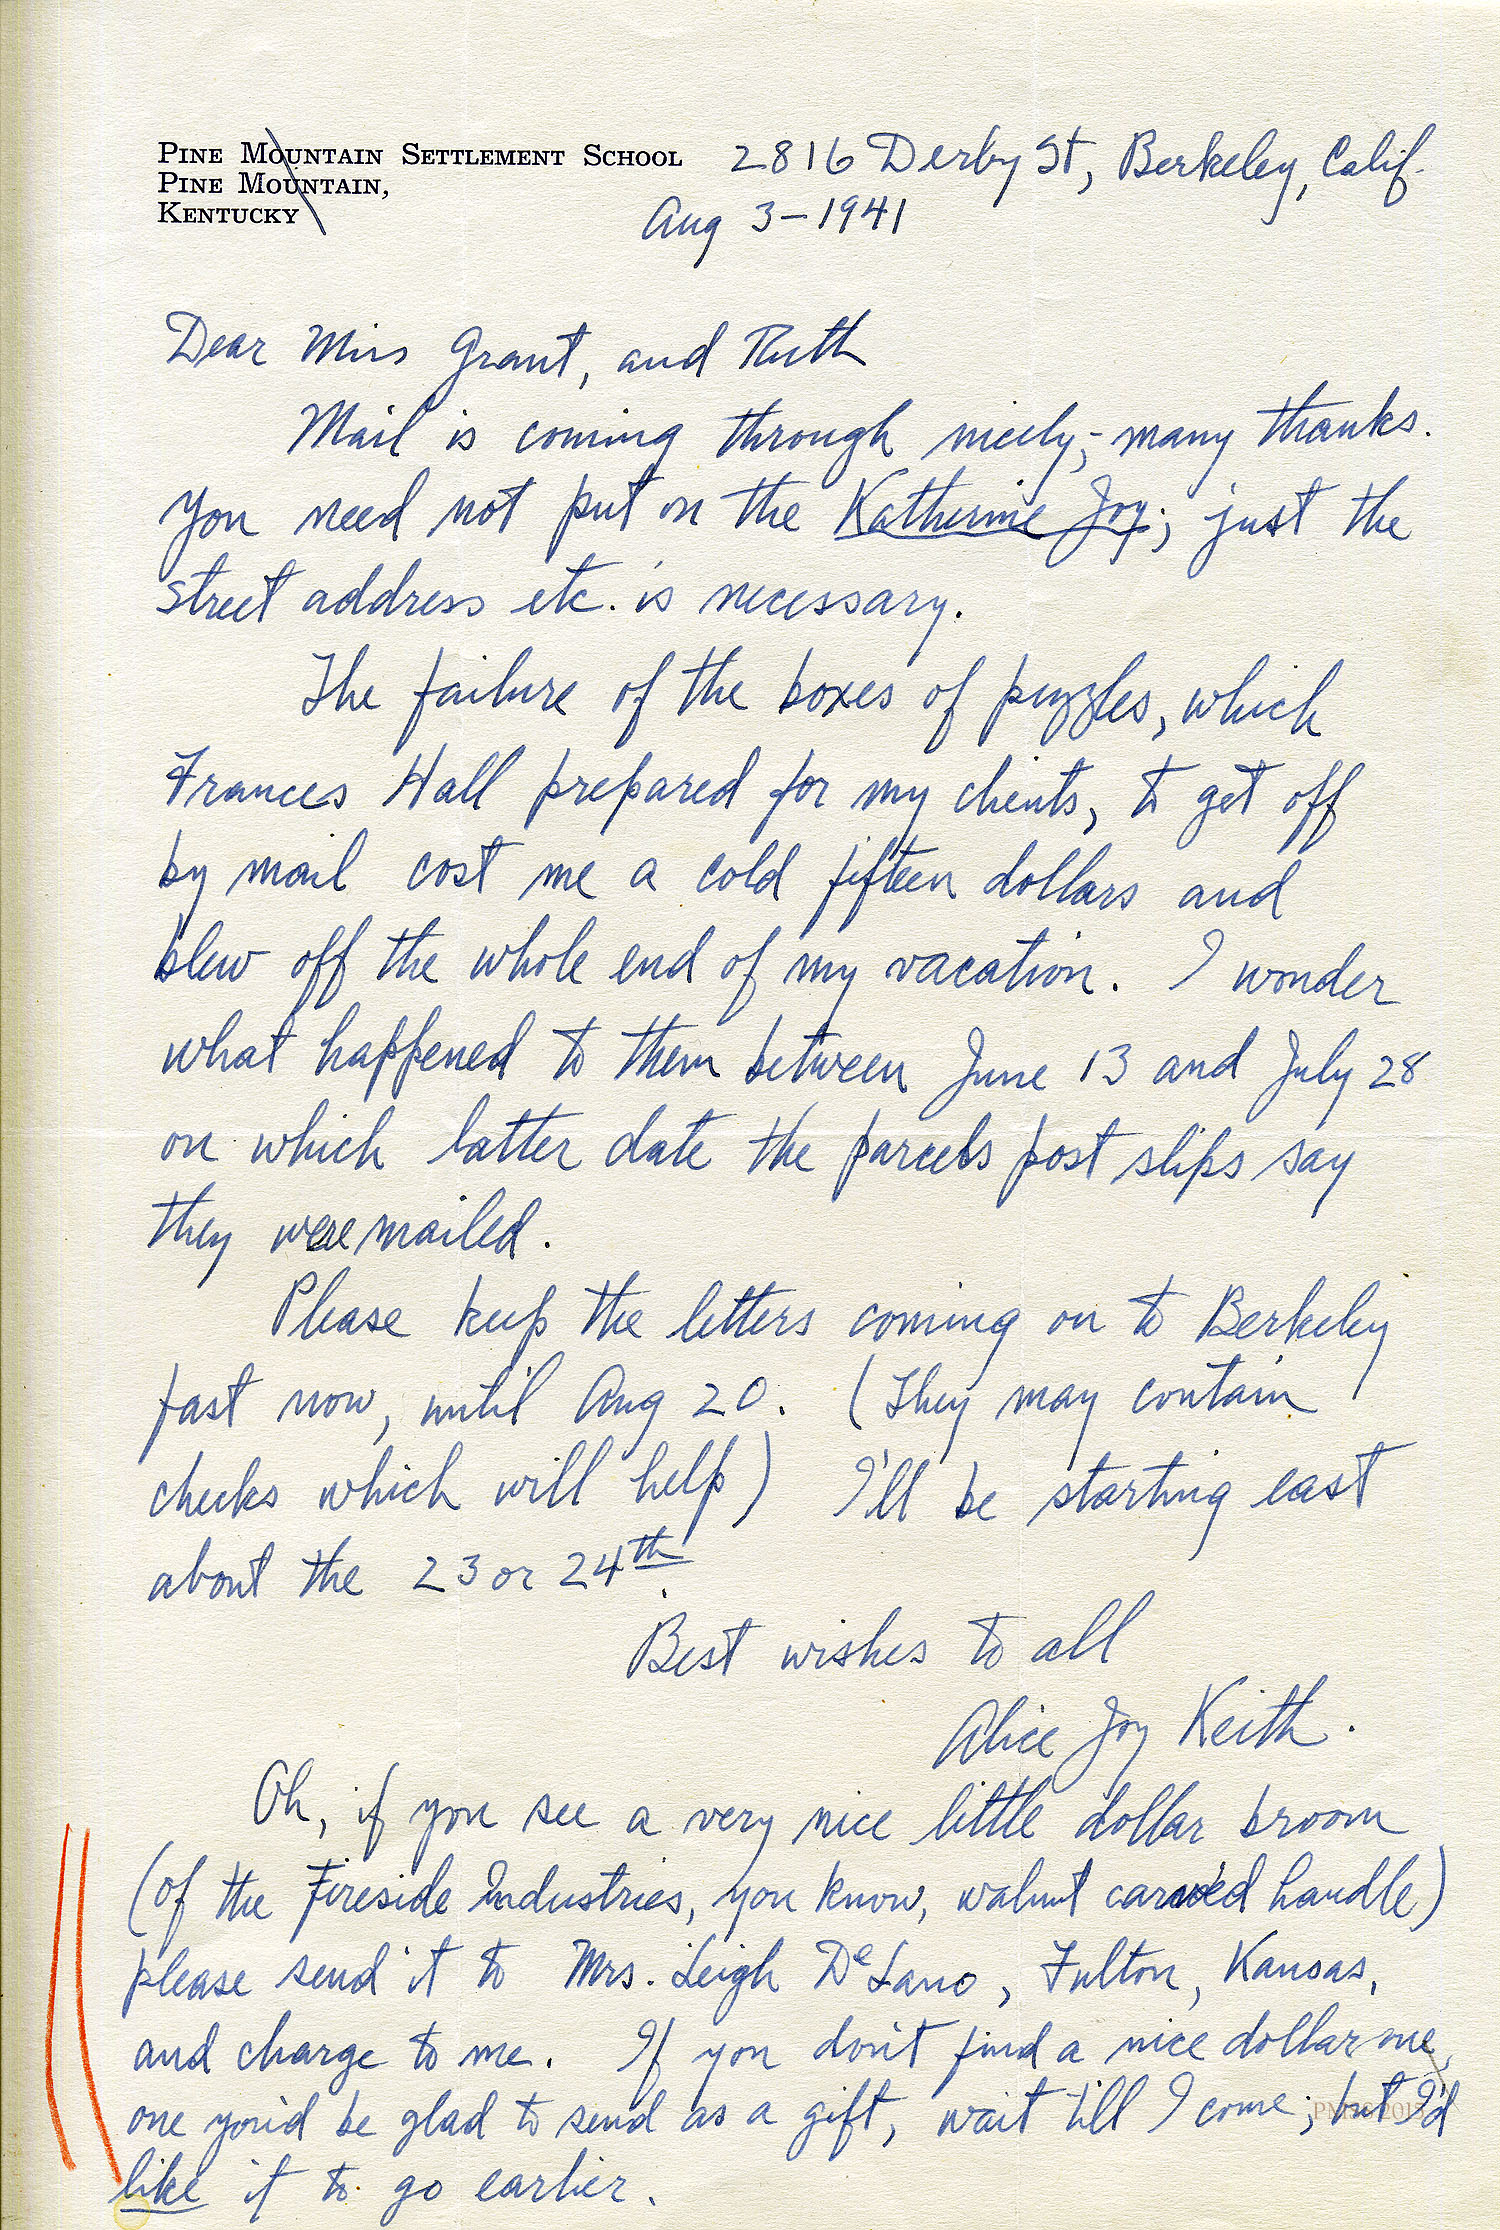 PINE MOUNTAIN SETTLEMENT SCHOOL
PINE MOUNTAIN,
KENTUCKY
2816 Derby St, Berkeley, Calif.
Aug 3-1941
Dear Miss Grant, and Ruth
Mail is coming through nicely;- many thanks.
You need not put on the Katherine Joy; just the
street address etc. is necessary.
The failure of the boxes of puzzles, which
Frances Hall prepared for my clients, to get off
by mail cost me a cold fifteen dollars and
blew off the whole end of my vacation. I wonder
what happened to them between June 13 and July 28
on which latter date the parcels post slips say
they were mailed.
Please keep the letters coming on to Berkeley
fast now, until Aug 20. (They may contain
checks which will help) I'll be starting east
about the 23 or 24th.
Best wishes to all
Alice Joy Keith.
Oh, if you see a very nice little dollar broom
(of the Fireside Industries, you know, walnut carved handle)
please send it to Mrs. Leigh DeLano, Fulton, Kansas,
and charge to me. If you don't find a nice dollar one,
one you'd be glad to send as a gift, wait till I come; but I'd
like it to go earlier.